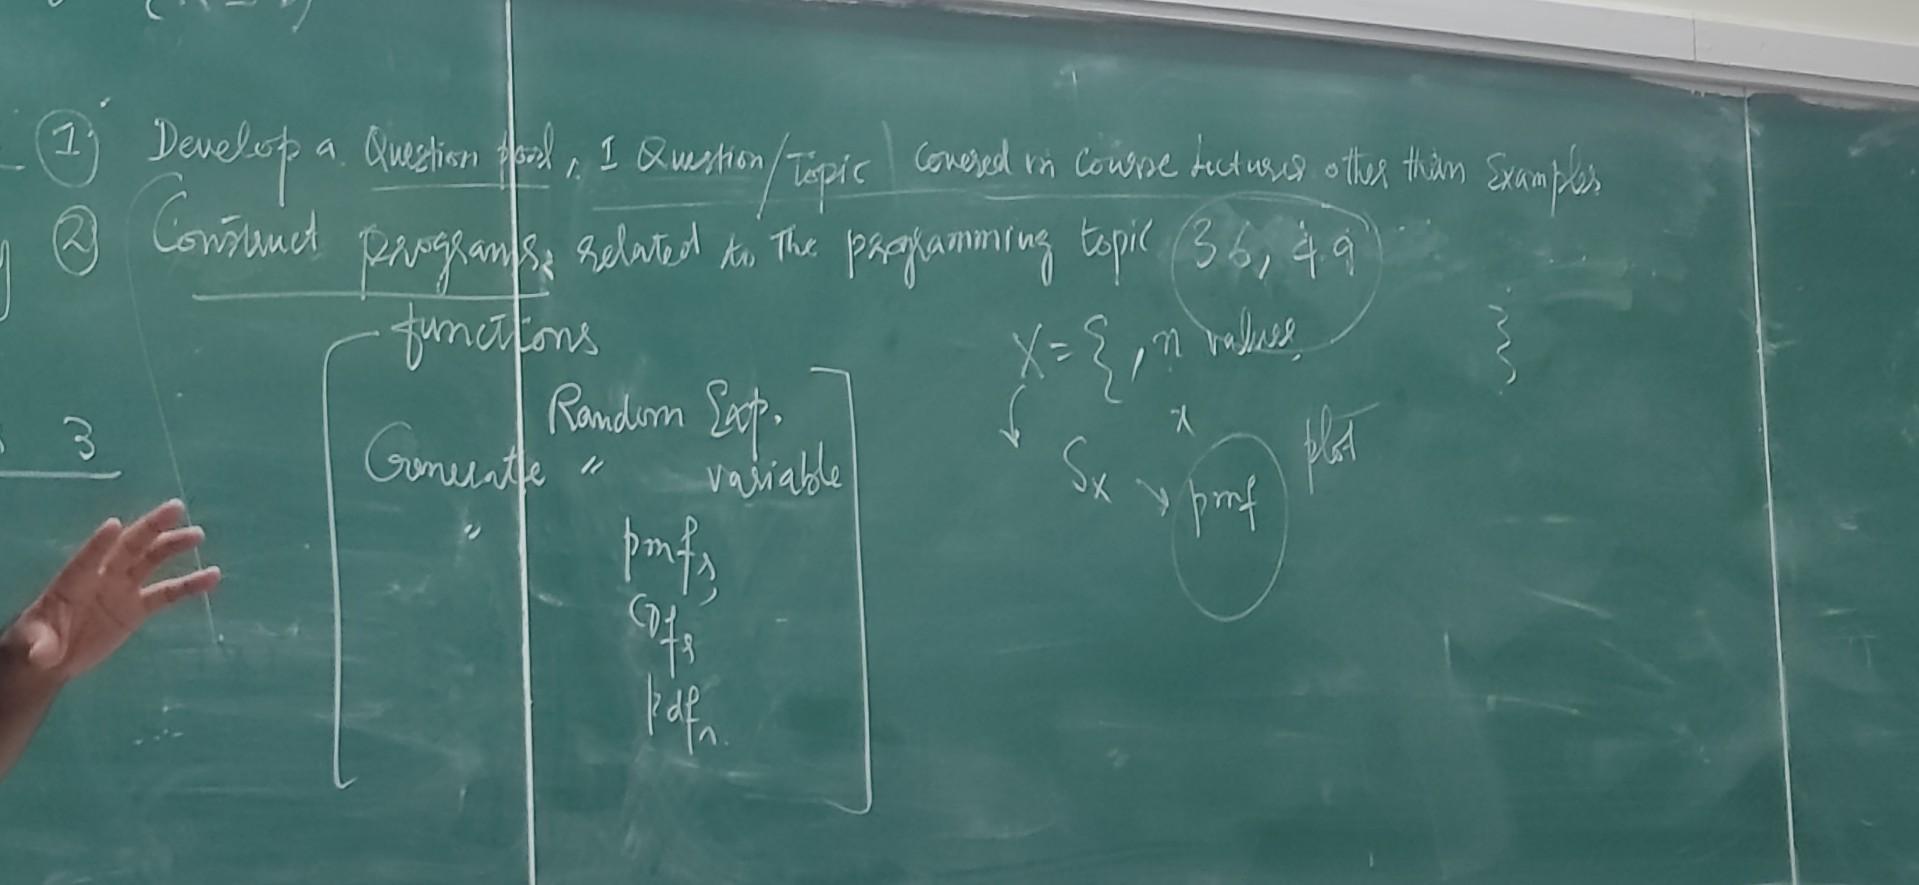 ① Develop a Question pool, 1 Question/Topic covered in Course Lectures other than Examples
② Construct programs, related to the programming topic 36, 49
functions
X = { , n values, }
Random Exp.
x
plot
Generate " variable
Sx → pmf
3
" pmfs,
CDfs
pdfs